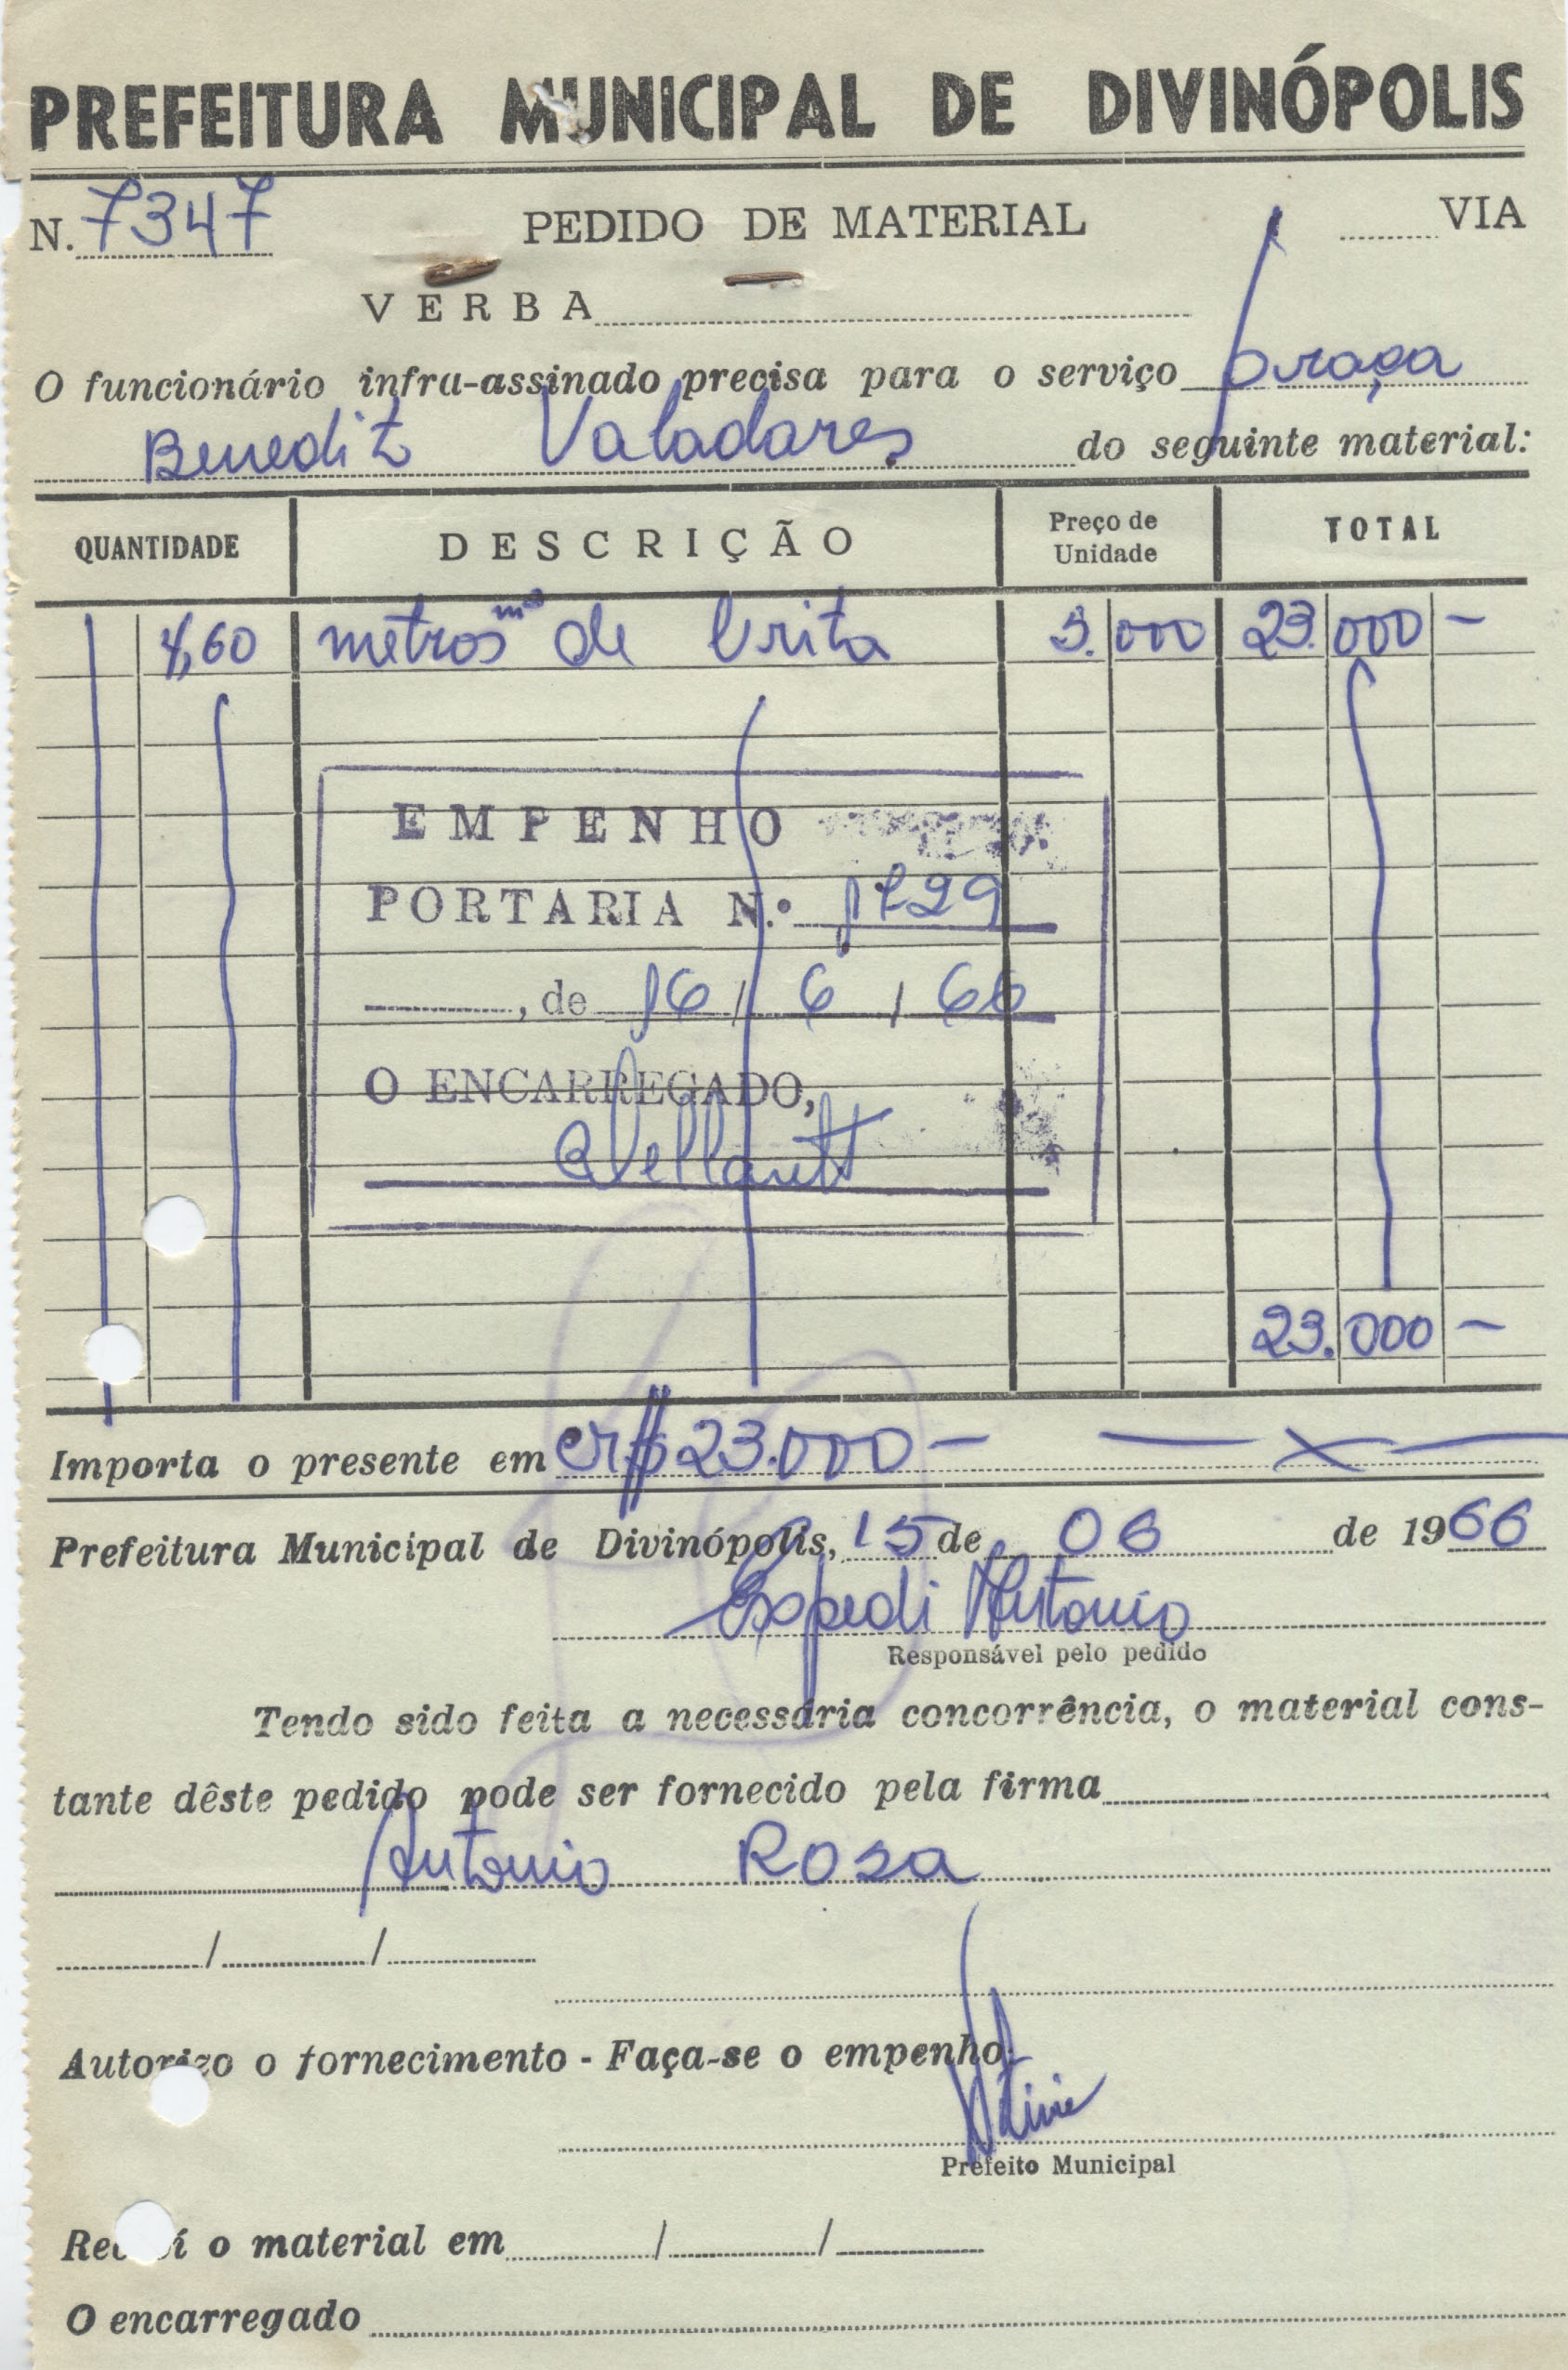 PREFEITURA MUNICIPAL DE DIVINÓPOLIS
N. 7347 PEDIDO DE MATERIAL ........ VIA
VERBA
O funcionário infra-assinado precisa para o serviço praça
Benedit Valadares do seguinte material:
QUANTIDADE DESCRIÇÃO Preço de Unidade TOTAL
4,60 metros m³ de brita 5.000 23.000 -
EMPENHO
PORTARIA N.º 1729
, de 16 / 6 / 66
O ENCARREGADO,
23.000 -
Importa o presente em Cr$ 23.000 - — x —
Prefeitura Municipal de Divinópolis, 15 de 06 de 1966
Expedi Antonio
Responsável pelo pedido
Tendo sido feita a necessária concorrência, o material cons-
tante dêste pedido pode ser fornecido pela firma
Antonio Rosa
/ /
Autorizo o fornecimento - Faça-se o empenho.
Prefeito Municipal
Recebí o material em / /
O encarregado